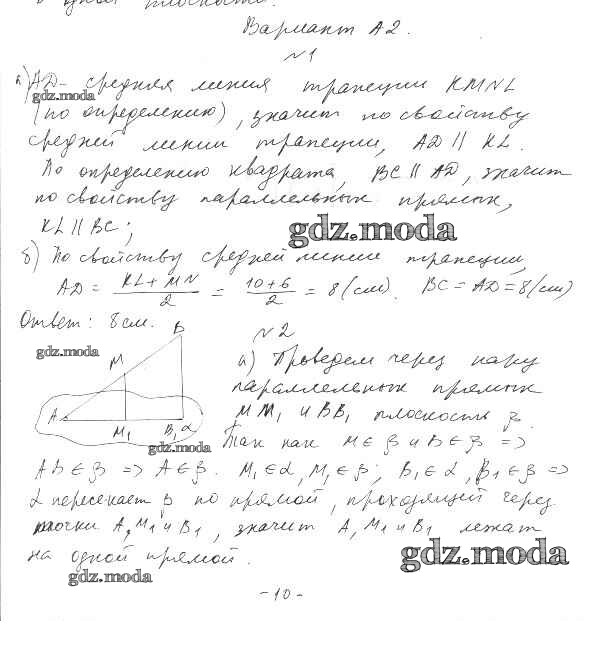 в одной плоскости.
Вариант А2.
№1
а) AD - средняя линия трапеции KMNL
gdz.moda
(по определению), значит по свойству
средней линии трапеции, AD || KL.
По определению квадрата, BC || AD, значит
по свойству параллельных прямых,
KL || BC;
gdz.moda
б) По свойству средней линии трапеции,
AD = (KL + MN)/2 = (10+6)/2 = 8 (см). BC = AD = 8 (см)
Ответ: 8 см.
B
№2
gdz.moda
M
а) Проведем через пару
параллельных прямых
MM₁ и BB₁ плоскость β.
A
M₁
B₁
α
gdz.moda
Так как M ∈ β и B ∈ β =>
AB ∈ β => A ∈ β. M₁ ∈ α, M₁ ∈ β; B₁ ∈ α, B₁ ∈ β =>
α пересекает β по прямой, проходящей через
точки A, M₁ и B₁, значит A, M₁ и B₁ лежат
на одной прямой.
gdz.moda
gdz.moda
-10-